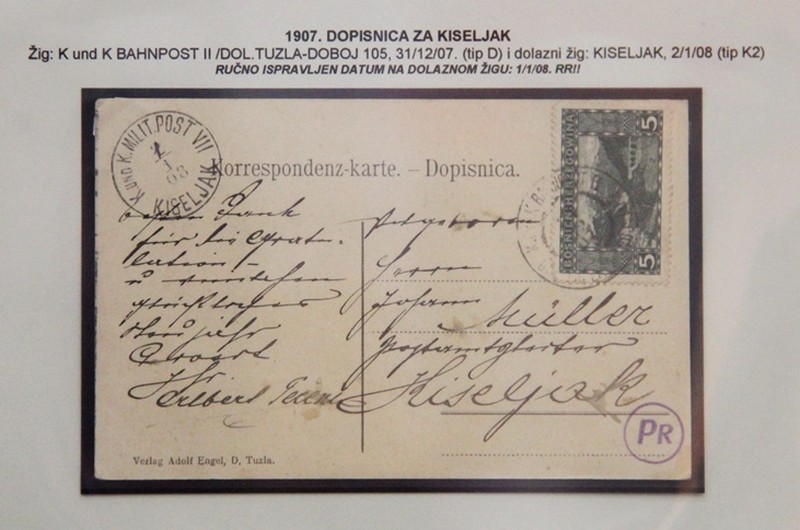 1907. DOPISNICA ZA KISELJAK
Žig: K und K BAHNPOST II /DOL.TUZLA-DOBOJ 105, 31/12/07. (tip D) i dolazni žig: KISELJAK, 2/1/08 (tip K2)
RUČNO ISPRAVLJEN DATUM NA DOLAZNOM ŽIGU: 1/1/08. RR!!
K UND K. MILIT. POST VII
KISELJAK
Korrespondenz-karte. – Dopisnica.
5 BOSNIEN-HERZEGOWINA 5
Dank
für die Gratu-
lation
u
Neujahr
Herrn
Johann
Müller
Kiseljak
PR
Verlag Adolf Engel, D, Tuzla.